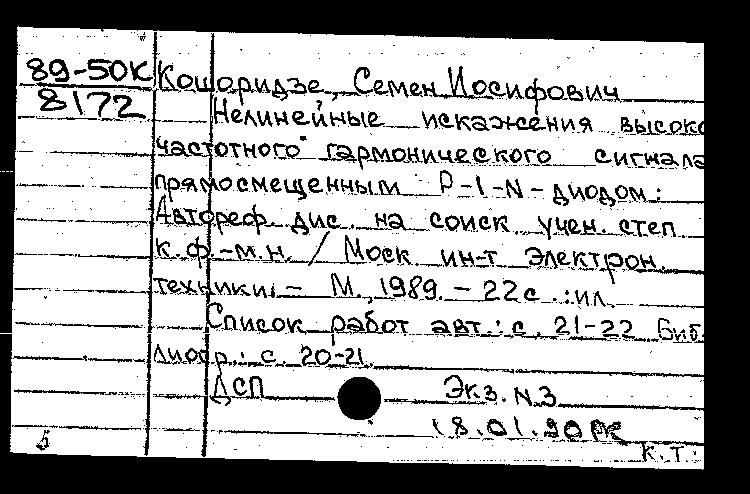 89-50К Кошоридзе, Семен Иосифович
8172 Нелинейные искажения высоко
частотного гармонического сигнала
прямосмещенным P-I-N-диодом:
Автореф. дис. на соиск. учен. степ
к.ф.-м.н. / Моск ин-т электрон.
техники. - М., 1989. - 22с.: ил.
Список работ авт.: с. 21-22 Биб.
лиогр.: с. 20-21.
ДСП Экз. N3
18.01.90
5 К.Т: